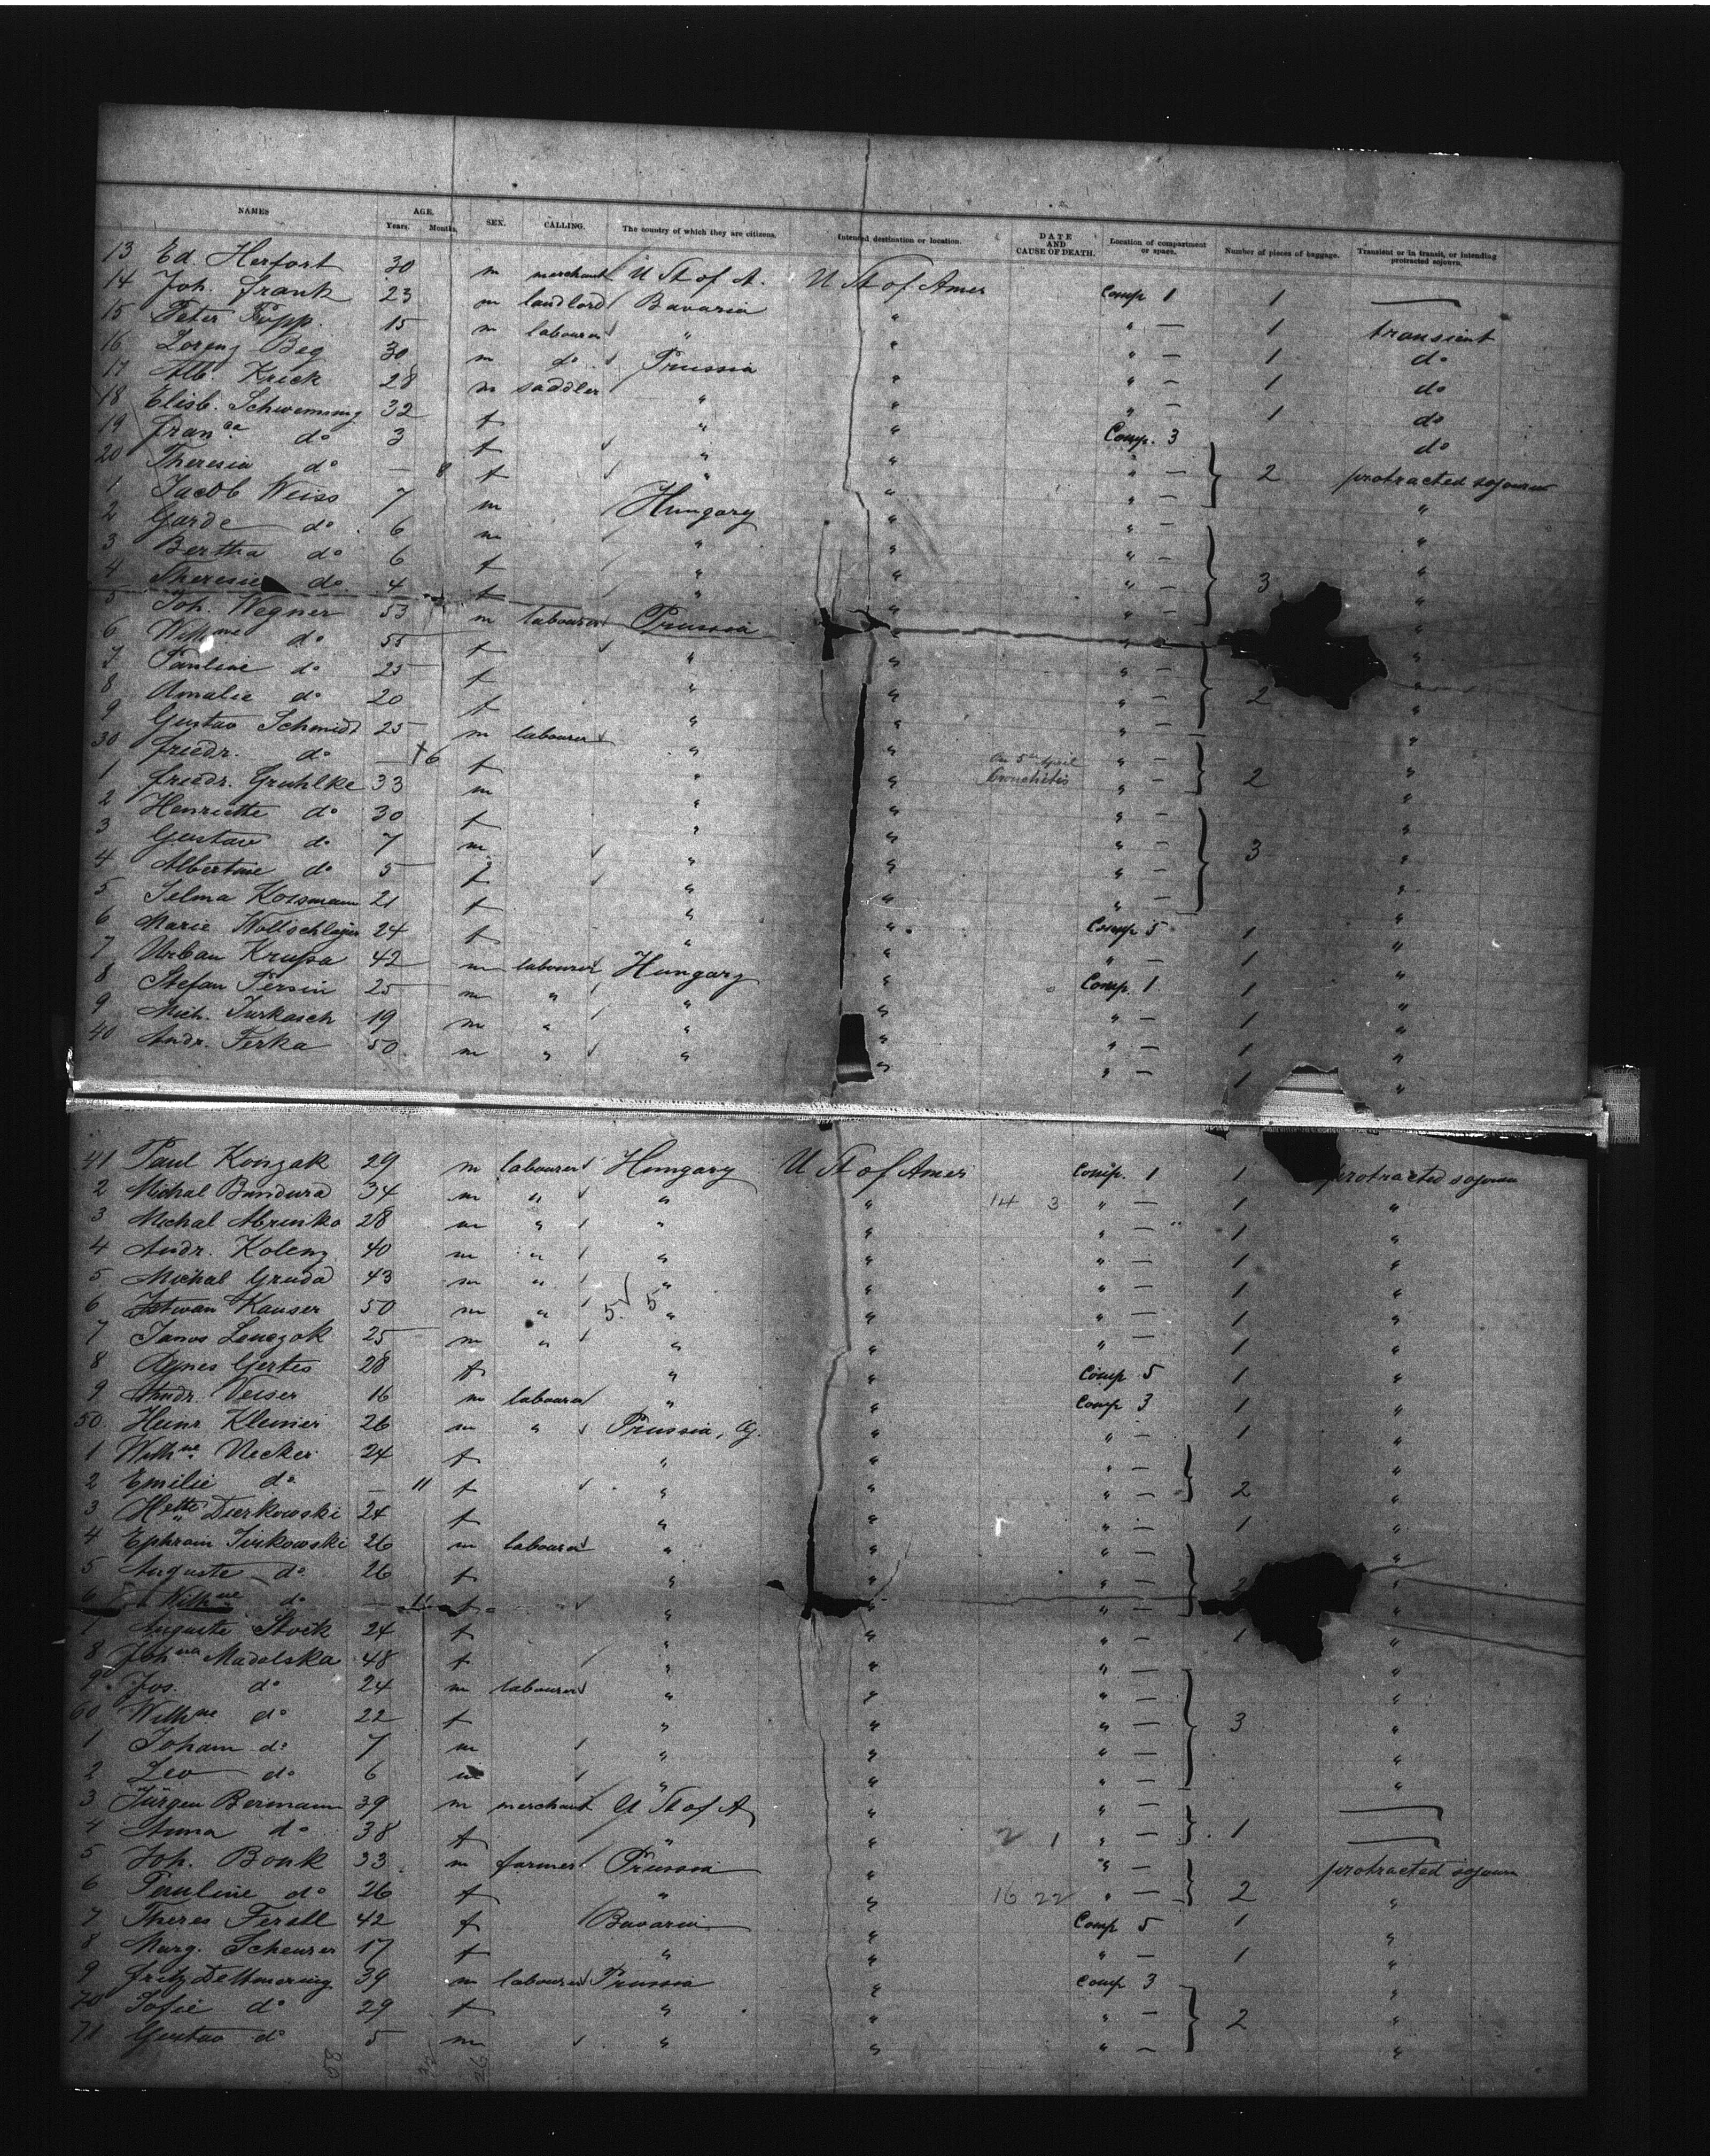 NAMES AGE. Years. Months. SEX. CALLING. The country of which they are citizens. Intended destination or location. DATE AND CAUSE OF DEATH. Location of compartment or space. Number of pieces of baggage. Transient or in transit, or intending protracted sojourn.
13 Ed. Herfort 30 m merchant U St of A. U St of Amer Comp 1 1 —
14 Joh. Frank 23 m landlord Bavaria " " — 1 transient
15 Peter 15 m labourer " " " — 1 do
16 Lorenz Beg 30 m do Prussia " " — 1 do
17 Alb. Krick 28 m saddler " " " — 1 do
18 Elisb. Schwemung 32 f " " Comp. 3 do
19 Fran ca do 3 f " " " — 2 protracted sojourn
20 Theresia do — 8 f " " " — "
1 Jacob Weiss 7 m Hungary " " — "
2 Garde do 6 m " " " — "
3 Bertha do 6 f " " " — 3 "
4 Theresie do 4 f " " " — "
5 Joh. Wegner 53 m labourer Prussia " " — "
6 Wilh ne do 55 f " " " — "
7 Pauline do 25 f " " " — 2 "
8 Amalie do 20 f " " " — "
9 Gustav Schmidt 25 m labourer " " " — "
30 Friedr. do — † 6 f " " On 5th April Bronchitis " — 2 "
1 Friedr. Gruhlke 33 m " " " — "
2 Henriette do 30 f " " " — "
3 Gustav do 7 m " " " — 3 "
4 Albertine do 5 f " " " — "
5 Selma Kossmann 21 f " " Comp 5 1 "
6 Marie Wollschlager 24 f " " " — 1 "
7 Urban Krupa 42 m labourer Hungary " Comp. 1 1 "
8 Stefan Persin 25 m " " " " — 1 "
9 Mich. Turkasch 19 m " " " " — 1 "
40 Andr. Ferka 50 m " " " " — 1 "
41 Paul Konzak 29 m labourer Hungary U St of Amer Comp. 1 1 protracted sojourn
2 Michal Bundura 34 m " " " 14 3 " — 1 "
3 Michal 28 m " " " " — 1 "
4 Andr. Kolenz 40 m " " " " — 1 "
5 Michal Gruda 43 m " " " " — 1 "
6 Istwan Kauser 50 m " 5. 5 " " " — 1 "
7 Janos Lenczok 25 m " " " " — 1 "
8 Agnes Gertes 28 f " " Comp 5 1 "
9 Andr. Veiser 16 m labourer " " Comp 3 1 "
50. Heinr. Klemier 26 m " Prussia, G. " " — 1 "
1 Wilh ne. Necker 24 f " " " — "
2 Emilie do — 11 f " " " — 2 "
3 H ette Dierkowski 24 f " " " — 1 "
4 Ephraim Jirikowski 26 m labourer " " " — "
5 Auguste do 26 f " " " — 2 "
6 Wilh ne do — 11 f " " " — "
7 Auguste Stock 24 f " " " — 1 "
8 Joh na Madalska 48 f " " " — "
9 Jos. do 24 m labourer " " " — "
60 Wilh ne do 22 f " " " — 3 "
1 Johann do 7 m " " " — "
2 Leo do 6 m " " " — "
3 Jürgen Bermann 39 m merchant U St of A " " — 1 —
4 Anna do 38 f " " 2 1 " — —
5 Joh. Bonk 33 m farmer Prussia " " — protracted sojourn
6 Pauline do 26 f " " 16 22 " — 2 "
7 Theres Ferstl 42 f Bavaria " Comp 5 1 "
8 Marg. Scheurer 17 f " " " — 1 "
9 Fritz Dettmering 39 m labourer Prussia " Comp 3 "
70 Sofie do 29 f " " " — 2 "
71 Gustav do 5 m " " " — "
58 32 26